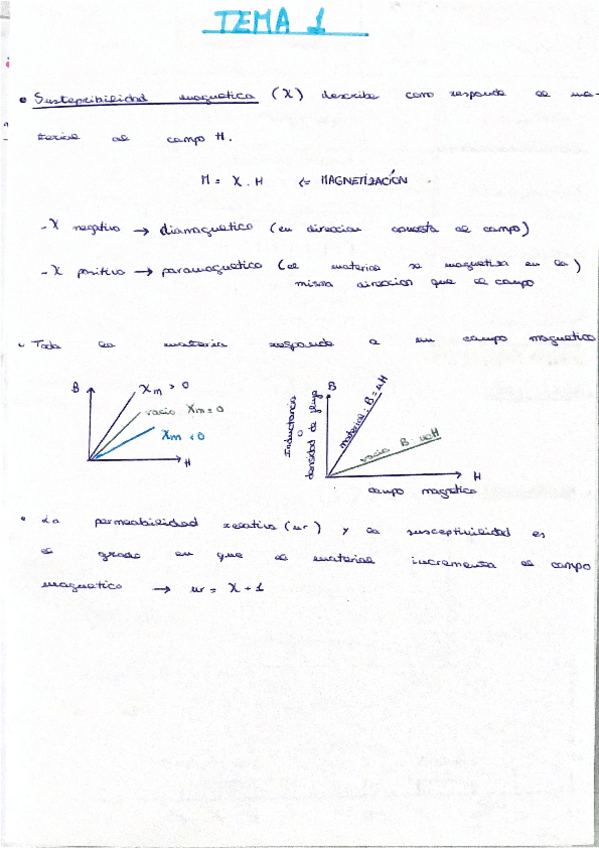 TEMA 1
• Susteptibilidad magnetica (X) describe como responde el ma-
terial al campo H.
M = X . H <= MAGNETIZACIÓN .
- X negativo → diamagnetico (en direccion opuesta al campo)
- X positivo → paramagnetico (el material se magnetiza en la)
misma direccion que el campo
• Toda la materia responde a un campo magnetico
B
Xm > 0
vacio Xm = 0
Xm < 0
H
Inductancia
o
densidad de flujo
B
material: B = uH
vacio B: uoH
H
campo magnetico
• La permeabilidad relativa (ur) y la susceptivilidad es
el grado en que el material incrementa el campo
magnetico → ur = X + 1